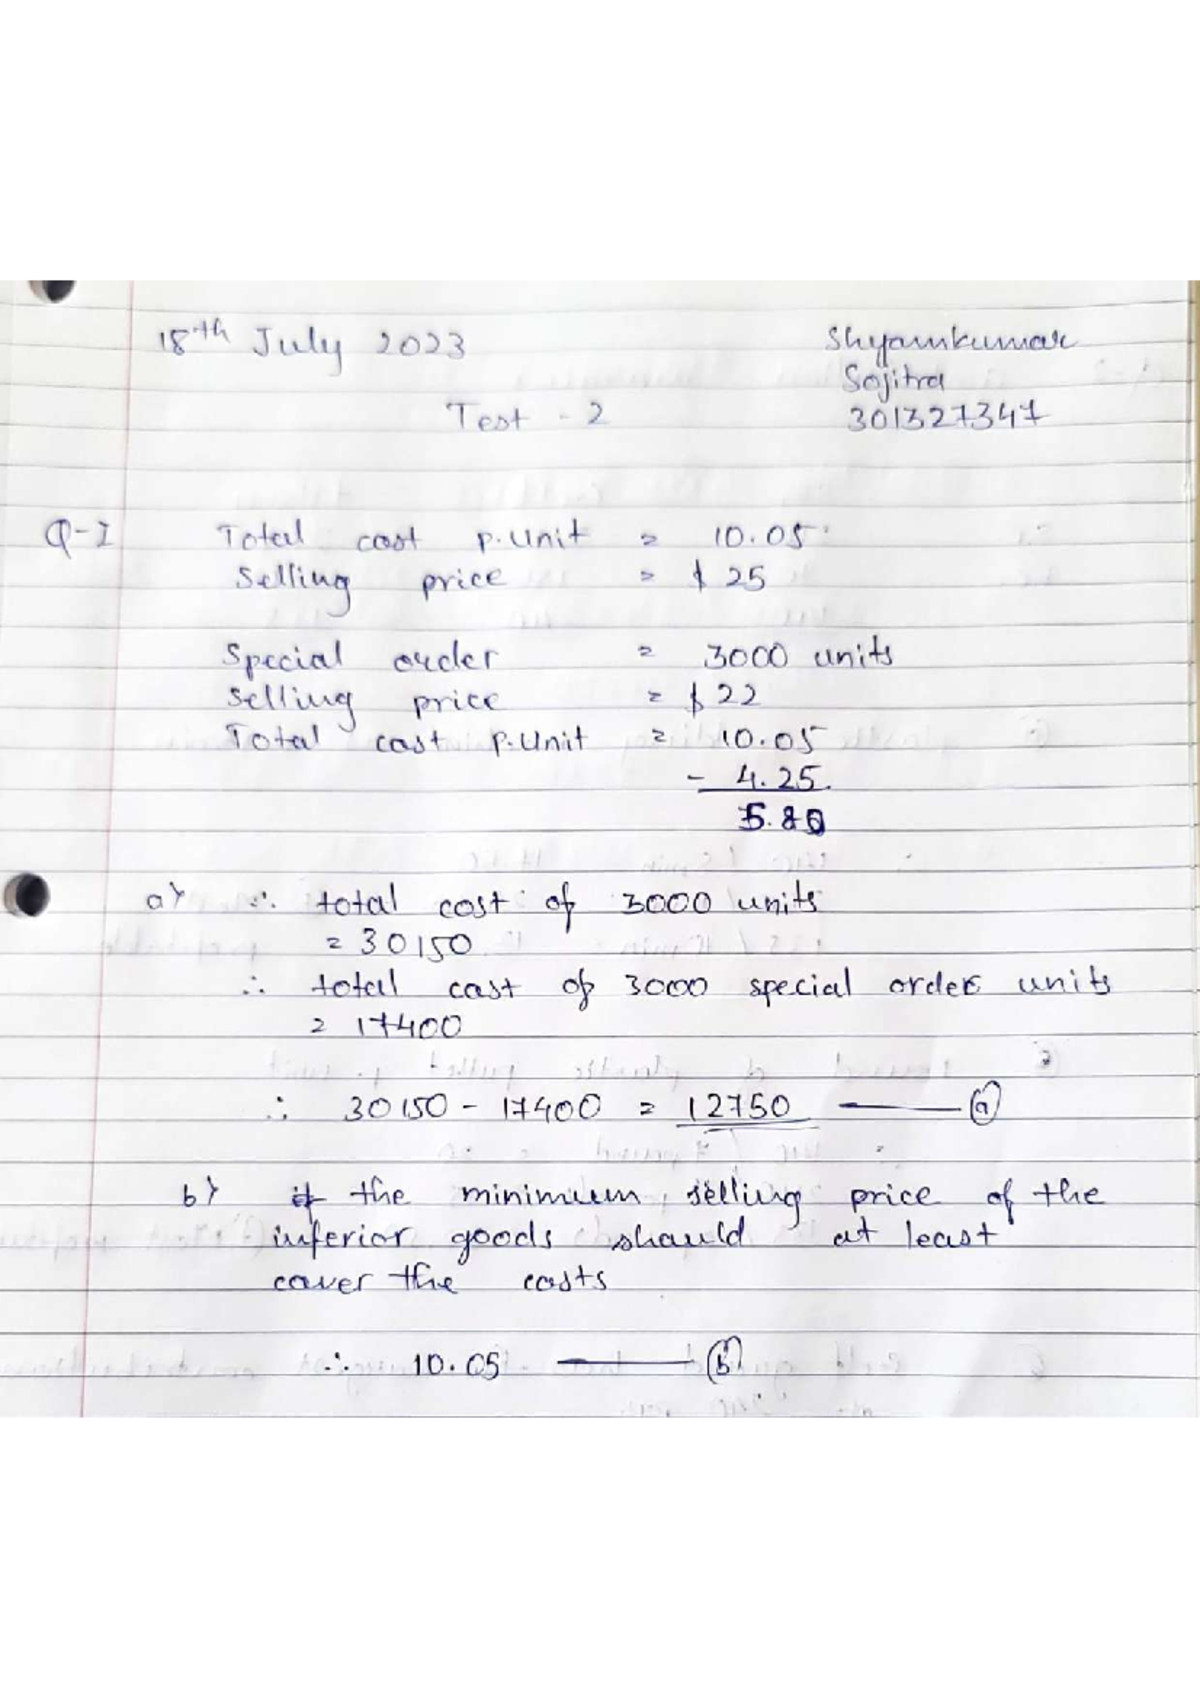 18th July 2023
Shyamkumar
Sojitra
301327347
Test - 2
Q-1 Total cost p.unit = 10.05
Selling price = $ 25
Special order = 3000 units
Selling price = $ 22
Total cost p.unit = 10.05
- 4.25
5.80
a) ∴ total cost of 3000 units
= 30150
∴ total cost of 3000 special order units
= 17400
∴ 30150 - 17400 = 12750 — (a)
b) if the minimum selling price of the
inferior goods should at least
cover the costs
∴ 10.05 — (b)